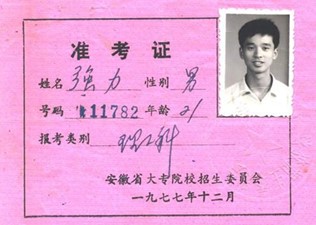 准考证
姓名 强力 性别 男
号码 11782 年龄 21
报考类别 理工科
安徽省大专院校招生委员会
一九七七年十二月